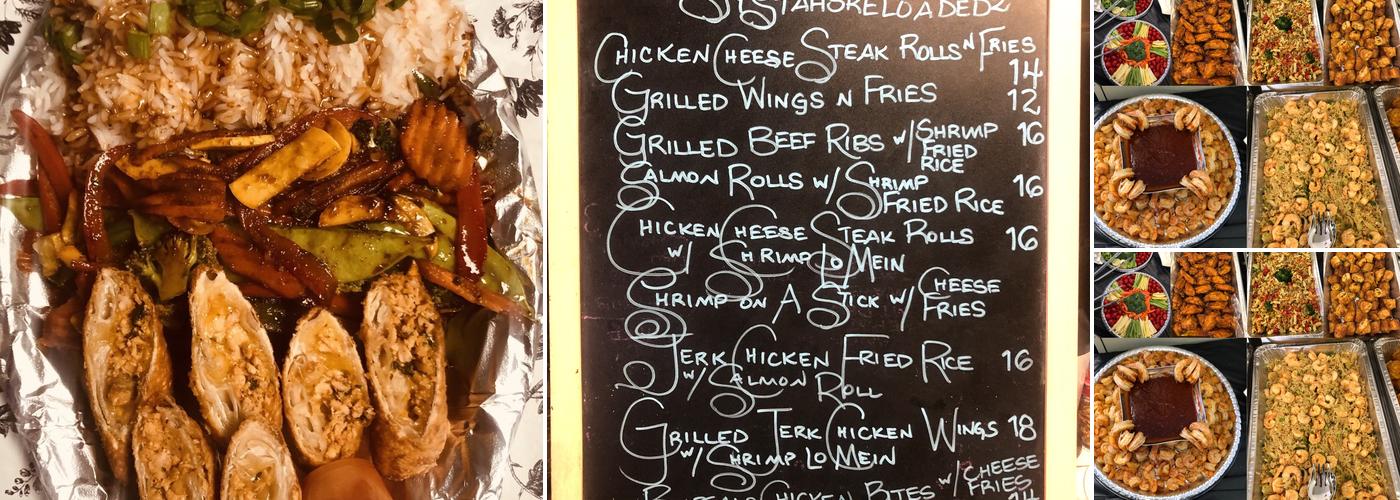 CHICKEN CHEESE STEAK ROLLS N FRIES
14
GRILLED WINGS N FRIES 12
GRILLED BEEF RIBS w/ SHRIMP 16
FRIED
RICE
SALMON ROLLS w/ SHRIMP 16
FRIED RICE
CHICKEN CHEESE STEAK ROLLS 16
w/ SHRIMP LO MEIN
SHRIMP ON A STICK w/ CHEESE
FRIES
JERK CHICKEN FRIED RICE 16
w/ SALMON ROLL
GRILLED JERK CHICKEN WINGS 18
w/ SHRIMP LO MEIN
CHICKEN BITES w/ CHEESE
FRIES
14